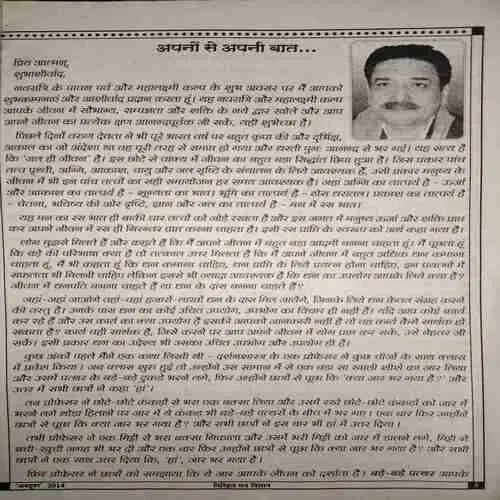 अपनों से अपनी बात...
प्रिय आत्मन्,
शुभाशीर्वाद,
नवरात्रि के पावन पर्व और महालक्ष्मी कल्प के शुभ अवसर पर मैं आपको
शुभकामनाएं और आशीर्वाद प्रदान करता हूं। यह नवरात्रि और महालक्ष्मी कल्प
आपके जीवन में सौभाग्य, सम्पन्नता और शक्ति के नये द्वार खोले और आप
अपने जीवन का प्रत्येक क्षण आनन्दपूर्वक जी सकें, यही शुभेच्छा है।
पिछले दिनों वरुण देवता ने भी पूरे भारत वर्ष पर बहुत कृपा की और दुर्भिक्ष,
अकाल का जो अंदेशा था वह पूरी तरह से समाप्त हो गया और धरती पुनः आनन्द से भर गई। यह सत्य है
कि 'जल ही जीवन' है। इस छोटे से वाक्य में जीवन का बहुत बड़ा सिद्धांत छिपा हुआ है। जिस प्रकार पांच
तत्व पृथ्वी, अग्नि, आकाश, वायु और जल सृष्टि के संचालन के लिये आवश्यक हैं, उसी प्रकार मनुष्य के
जीवन में भी इन पांच तत्वों का सही समायोजन हर समय आवश्यक है। जहां अग्नि का तात्पर्य है - ऊर्जा
और आकाश का तात्पर्य है - शून्यता का भाव। भूमि का तात्पर्य है - ठोस धरातल। प्रकाश का तात्पर्य है
- चेतना, भविष्य की ओर दृष्टि, ज्ञान और जल का तात्पर्य है - मन में रस भाव।
यह मन का रस भाव ही बाकी चार तत्वों को जोड़े रखता है और इस जगत में मनुष्य ऊर्जा और शक्ति प्राप्त
कर अपने जीवन में रस ही निरन्तर प्राप्त करना चाहता है। इसी रस प्राप्ति के स्वरूप को अर्थ कहा गया है।
लोग मुझसे मिलते हैं और कहते हैं कि मैं अपने जीवन में बहुत बड़ा आदमी बनना चाहता हूं। मैं पूछता हूं
कि बड़े की परिभाषा क्या है तो तत्काल उत्तर मिलता है कि मैं अपने जीवन में बहुत अधिक धन कमाना
चाहता हूं, मैं भी कहता हूं कि धन कमाना चाहिए, धन प्राप्ति के लिये प्रयत्न होना चाहिए, इन प्रयत्नों में
सफलता भी मिलनी चाहिए लेकिन इससे भी ज्यादा आवश्यक है कि धन का उपयोग आपके लिये क्या है?
जीवन में धनपति बनना चाहते हैं या धन के दास बनना चाहते हैं?
जहां-जहां जाओगे वहां-वहां हजारों-लाखों धन के दास मिल जायेंगे, जिनके लिये धन केवल संग्रह करने
की वस्तु है। उनके पास धन का कोई उचित उपयोग, उपभोग का विचार ही नहीं है। यदि आप कोई कार्य
कर रहे हैं और उस कार्य का क्या उपयोग है इसकी आपको जानकारी नहीं है तो वह कार्य कैसे सार्थक हो
सकता है? कार्य वही सार्थक है, जिसे करने पर आप अपने जीवन में योग प्राप्त कर सकें, उसे बेहतर जी
सकें। इसी प्रकार धन का उद्देश्य भी उसका उचित उपयोग और उपभोग ही है।
कुछ अंकों पहले मैंने एक कथा लिखी थी - दर्शनशास्त्र के एक प्रोफेसर ने कुछ चीजों के साथ क्लास
में प्रवेश किया। जब क्लास शुरू हुई तो उन्होंने उस सामान में से एक बड़ा सा खाली शीशे का जार लिया
और उसमें पत्थर के बड़े-बड़े टुकड़े भरने लगे, फिर उन्होंने छात्रों से पूछा कि 'क्या जार भर गया है?' और
उत्तर में सभी छात्रों ने कहा 'हां'।
तब प्रोफेसर ने छोटे-छोटे कंकड़ों से भरा एक बक्सा लिया और उसमें रखे छोटे-छोटे कंकड़ों को जार में
भरने लगे थोड़ा हिलाने पर जार में ये कंकड़ भी बड़े-बड़े पत्थरों के बीच में भर गए। एक बार फिर उन्होंने
छात्रों से पूछा कि क्या जार भर गया है? और सभी छात्रों ने इस बार भी हां में उत्तर दिया।
तभी प्रोफेसर ने एक मिट्टी से भरा बक्सा निकाला और उसमें भरी मिट्टी को जार में डालने लगे, मिट्टी से
बची-खुची जगह भी भर दी और एक बार फिर उन्होंने छात्रों से पूछा कि क्या जार भर गया है? और सभी
छात्रों ने एक साथ उत्तर दिया कि, 'हां', जार भर गया है।
फिर प्रोफेसर ने छात्रों को समझाया कि ये जार आपके जीवन को दर्शाता है। बड़े-बड़े पत्थर आपके
अक्टूबर 2014